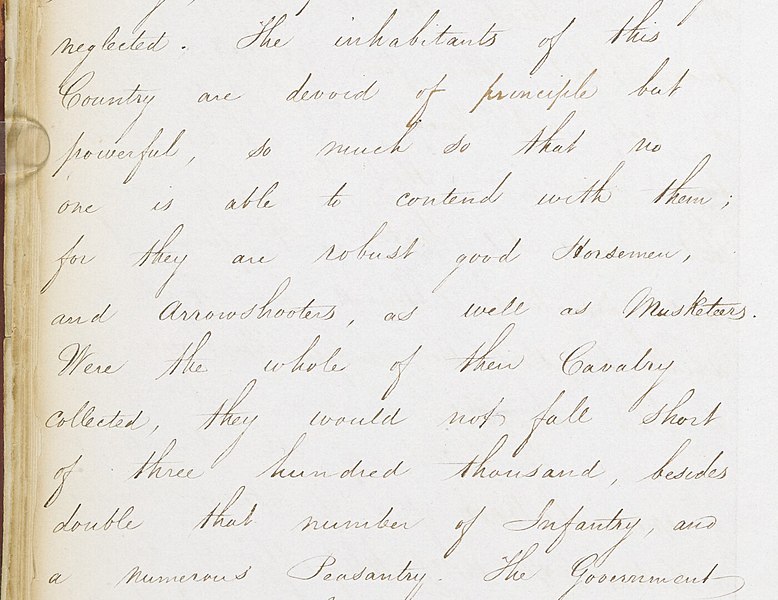 neglected. The inhabitants of this
Country are devoid of principle but
powerful, so much so that no
one is able to contend with them;
for they are robust good Horsemen,
and Arrowshooters, as well as Musketeers.
Were the whole of their Cavalry
collected, they would not fall short
of three hundred thousand, besides
double that number of Infantry, and
a numerous Peasantry. The Government